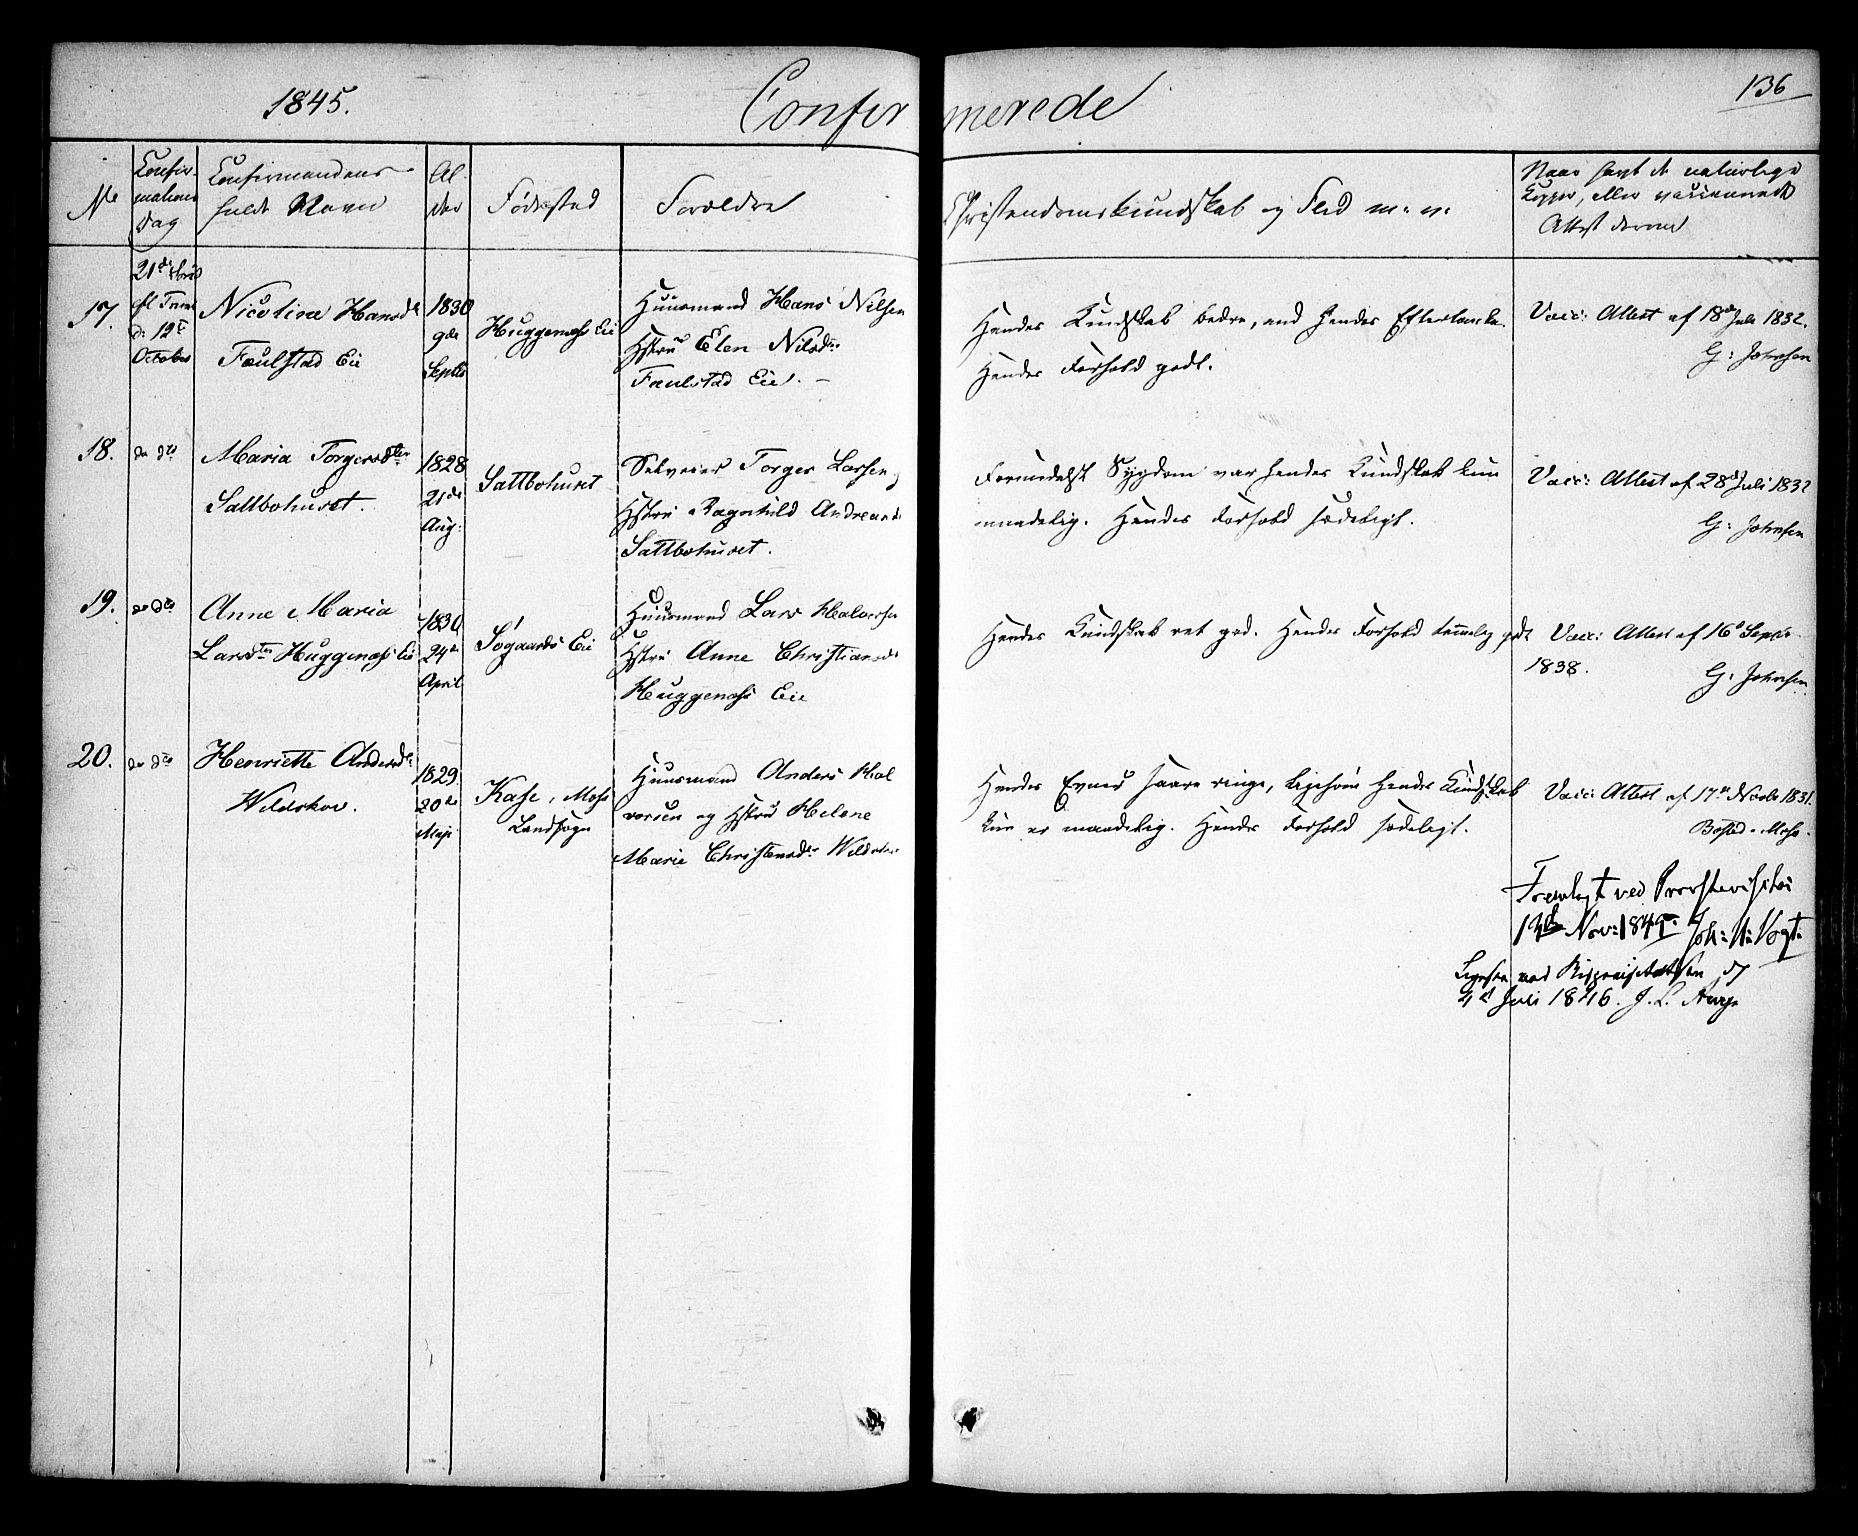 1845.
Confirmerede
136
No
Confir-
mations
Dag
Confirmandens
fulde Navn
Al-
der
Fødested
Forældre
Christendomskundskab og Flid m: v:
Naar havt de naturlige
Kopper, eller vaccinerede
Attest derom
17.
21de
d: 12te
October
Nicoline Hansdtr
Faulstad Eie
1830
9de
Septbr
Huggenæss Eie
Huusmand Hans Nilsen
Hstru Elen Nilsdtr
Faulstad Eie. –
Hendes Kundskab bedre, end hendes Eftertanke.
Hendes Forhold godt.
Vacc: Attest af 18de Juli 1832.
G: Johnsen
18.
do do
Maria Torgersdtr
Saltbohuset.
1828
21de
Aug:
Saltbohuset
Selveier Torger Larsen
Hstru Ragnhild Andreasd
Saltbohuset.
Formedelst Sygdom var hendes Kundskab kun
maadelig. Hendes Forhold sædeligt.
Vacc: Attest af 28de Juli 1832
G: Johnsen
19.
do do
Anne Maria
Larsdtr Huggenæss Eie
1830
24de
April
Søgaards Eie
Huusmand Lars Halvorsen
Hstru Anne Christiansd
Huggenæss Eie
Hendes Kundskab ret god. Hendes Forhold temmelig godt
Vacc: Attest af 16de Septbr
1838.
G: Johnsen
20.
do do
Henriette Andersdtr
Wildskov.
1829
20de
Maji
Kase, Moss
Landsogn
Huusmand Anders Hal
vorsen og Hstru Helene
Marie Christensdtr
Hendes Evner saare ringe, ligesom hendes Kundskab
kun er maadelig. Hendes Forhold sædeligt.
Vacc: Attest af 17de Novbr 1831.
Moss.
Fremlagt ved Provstevisitas
Nov: 1845
Vogt
Ligesaa ved Bispevisitatsen
4de Juli 1846.